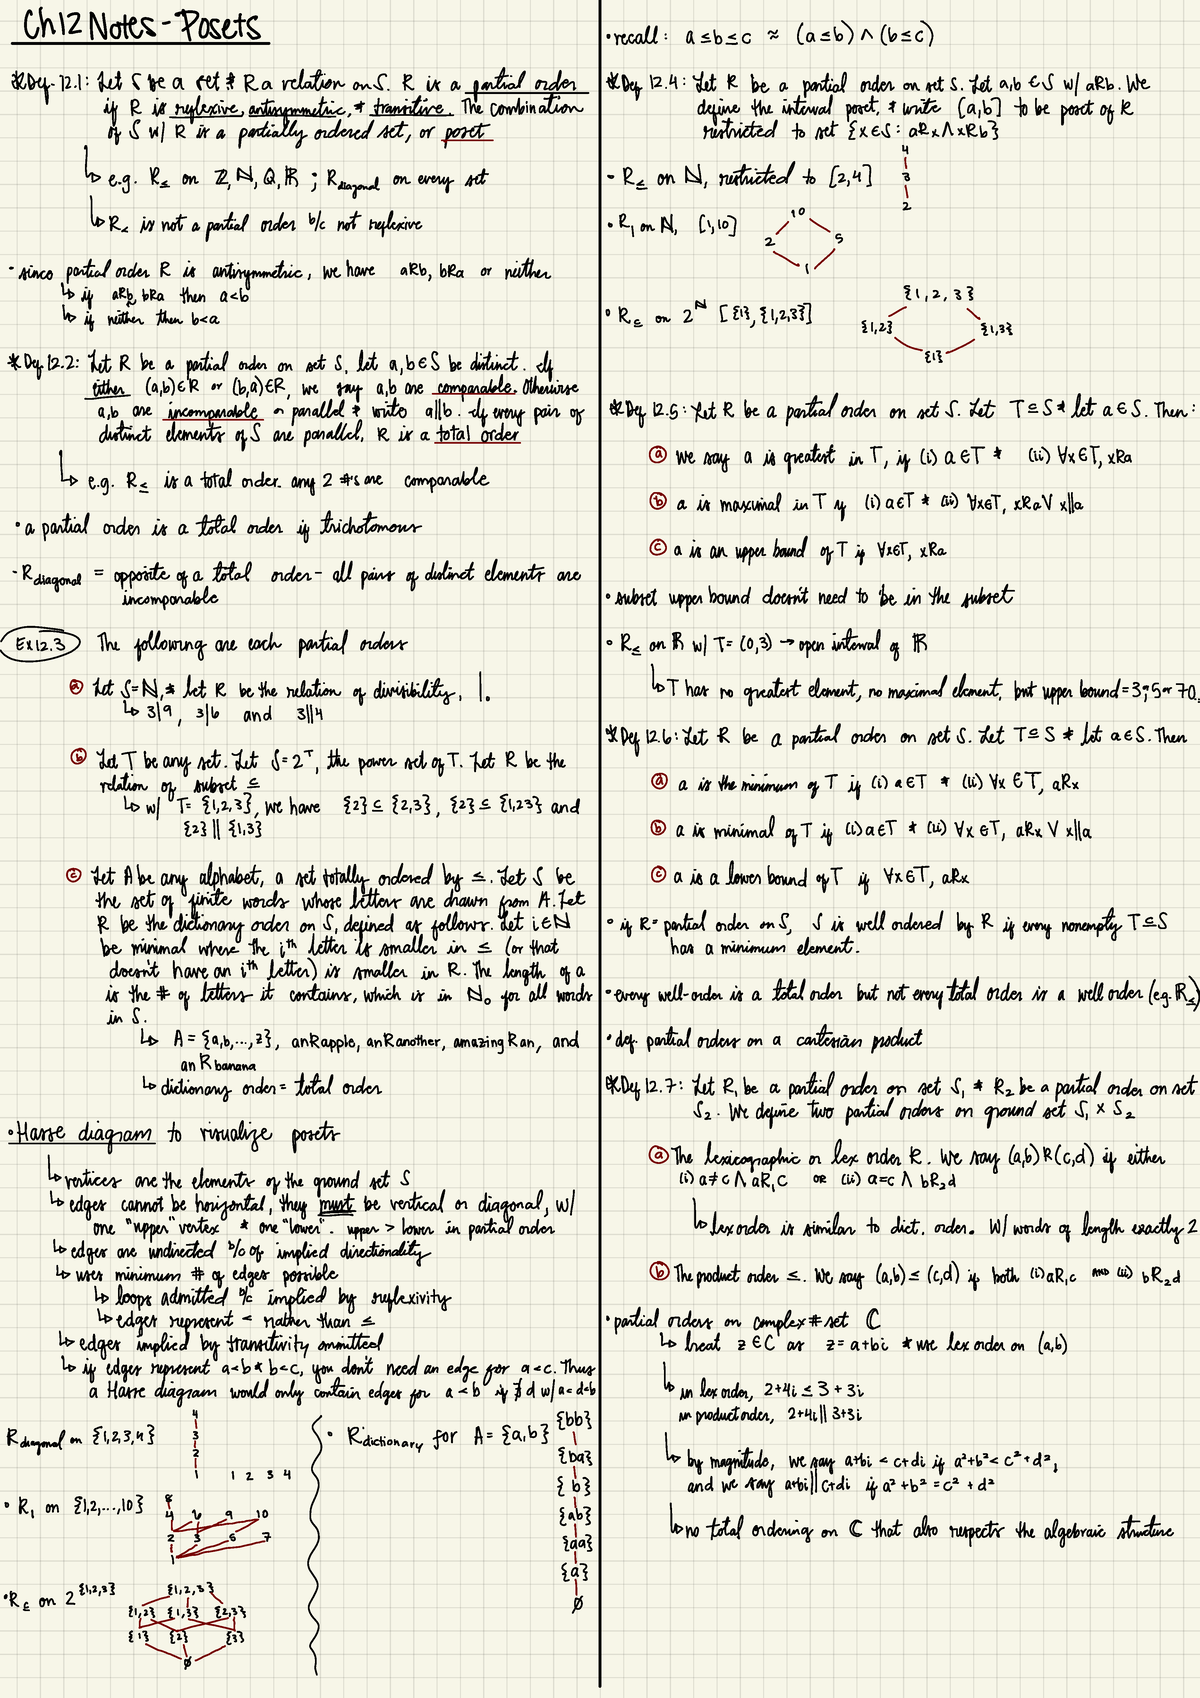 Ch12 Notes - Posets
*Def. 12.1: Let S be a set & R a relation on S. R is a partial order
if R is reflexive, antisymmetric, & transitive. The combination
of S w/ R is a partially ordered set, or poset
↳ e.g. R≤ on ℤ, ℕ, ℚ, ℝ ; Rdiagonal on every set
↳ R< is not a partial order b/c not reflexive
· since partial order R is antisymmetric, we have aRb, bRa or neither
↳ if aRb, bRa then a<b
↳ if neither then b<a
*Def 12.2: Let R be a partial order on set S, let a,b∈S be distinct. If
either (a,b)∈R or (b,a)∈R, we say a,b are comparable. Otherwise
a,b are incomparable or parallel & write a||b. If every pair of
distinct elements of S are parallel, R is a total order
↳ e.g. R≤ is a total order. any 2 #'s are comparable
· a partial order is a total order if trichotomous
- Rdiagonal = opposite of a total order - all pairs of distinct elements are
incomparable
Ex12.3 The following are each partial orders
ⓐ Let S=ℕ, & let R be the relation of divisibility, |.
↳ 3|9, 3|6 and 3||4
ⓑ Let T be any set. Let S=2ᵀ, the power set of T. Let R be the
relation of subset ⊆
↳ w/ T= {1,2,3}, we have {2}⊆{2,3}, {2}⊆{1,23} and
{2}||{1,3}
ⓒ Let A be any alphabet, a set totally ordered by ≤. Let S be
the set of finite words whose letters are drawn from A. Let
R be the dictionary order on S, defined as follows. Let i∈ℕ
be minimal where the iᵗʰ letter is smaller in ≤ (or that
doesn't have an iᵗʰ letter) is smaller in R. The length of a
is the # of letters it contains, which is in ℕ₀ for all words
in S.
↳ A = {a,b,...,z}, anRapple, anRanother, amazingRan, and
anRbanana
↳ dictionary order = total order
· Hasse diagram to visualize posets
↳ vertices are the elements of the ground set S
↳ edges cannot be horizontal, they must be vertical or diagonal, w/
one "upper" vertex & one "lower". upper > lower in partial order
↳ edges are undirected b/c of implied directionality
↳ uses minimum # of edges possible
↳ loops admitted b/c implied by reflexivity
↳ edges represent < rather than ≤
↳ edges implied by transitivity ommitted
↳ if edges represent a<b & b<c, you don't need an edge for a<c. Thus
a Hasse diagram would only contain edges for a<b if ∄d w/a<d<b
Rdiagonal on {1,2,3,4}
4
3
2
1 1 2 3 4
· R| on {1,2,...,10}
8
4 6 9 10
2 3 5 7
1
· R⊆ on 2^{1,2,3}
{1,2,3}
{1,2} {1,3} {2,3}
{1} {2} {3}
∅
· Rdictionary for A = {a,b}
{bb}
{ba}
{b}
{ab}
{aa}
{a}
∅
· recall: a≤b≤c ≈ (a≤b)∧(b≤c)
*Def 12.4: Let R be a partial order on set S. Let a,b∈S w/ aRb. We
define the interval poset, & write [a,b] to be poset of R
restricted to set {x∈S: aRx∧xRb}
- R≤ on ℕ, restricted to [2,4]
4
3
2
· R| on ℕ, [1,10]
10
2 5
1
· R⊆ on 2^ℕ [{1},{1,2,3}]
{1,2,3}
{1,2} {1,3}
{1}
*Def 12.5: Let R be a partial order on set S. Let T⊆S & let a∈S. Then:
ⓐ we say a is greatest in T, if (i) a∈T & (ii) ∀x∈T, xRa
ⓑ a is maximal in T if (i) a∈T & (ii) ∀x∈T, xRa∨ x||a
ⓒ a is an upper bound of T if ∀x∈T, xRa
· subset upper bound doesn't need to be in the subset
· R≤ on ℝ w/ T= (0,3) → open interval of ℝ
↳ T has no greatest element, no maximal element, but upper bound=3,5 or 70.
*Def 12.6: Let R be a partial order on set S. Let T⊆S & let a∈S. Then
ⓐ a is the minimum of T if (i) a∈T & (ii) ∀x∈T, aRx
ⓑ a is minimal of T if (i) a∈T & (ii) ∀x∈T, aRx ∨ x||a
ⓒ a is a lower bound of T if ∀x∈T, aRx
· if R= partial order on S, S is well ordered by R if every nonempty T⊆S
has a minimum element.
· every well-order is a total order but not every total order is a well order (eg. ℝ≤)
· def. partial orders on a cartesian product
*Def 12.7: Let R₁ be a partial order on set S₁ & R₂ be a partial order on set
S₂. We define two partial orders on ground set S₁ × S₂
ⓐ The lexicographic or lex order R. We say (a,b)R(c,d) if either
(i) a≠c ∧ aR₁c OR (ii) a=c ∧ bR₂d
↳ lex order is similar to dict. order. W/ words of length exactly 2
ⓑ The product order ≤. We say (a,b)≤(c,d) if both (i) aR₁c AND (ii) bR₂d
· partial orders on complex # set ℂ
↳ treat z∈C as z=a+bi & use lex order on (a,b)
↳ in lex order, 2+4i ≤ 3+3i
in product order, 2+4i||3+3i
↳ by magnitude, we say a+bi < c+di if a²+b²<c²+d²,
and we say a+bi||c+di if a²+b²=c²+d²
↳ no total ordering on ℂ that also respects the algebraic structure